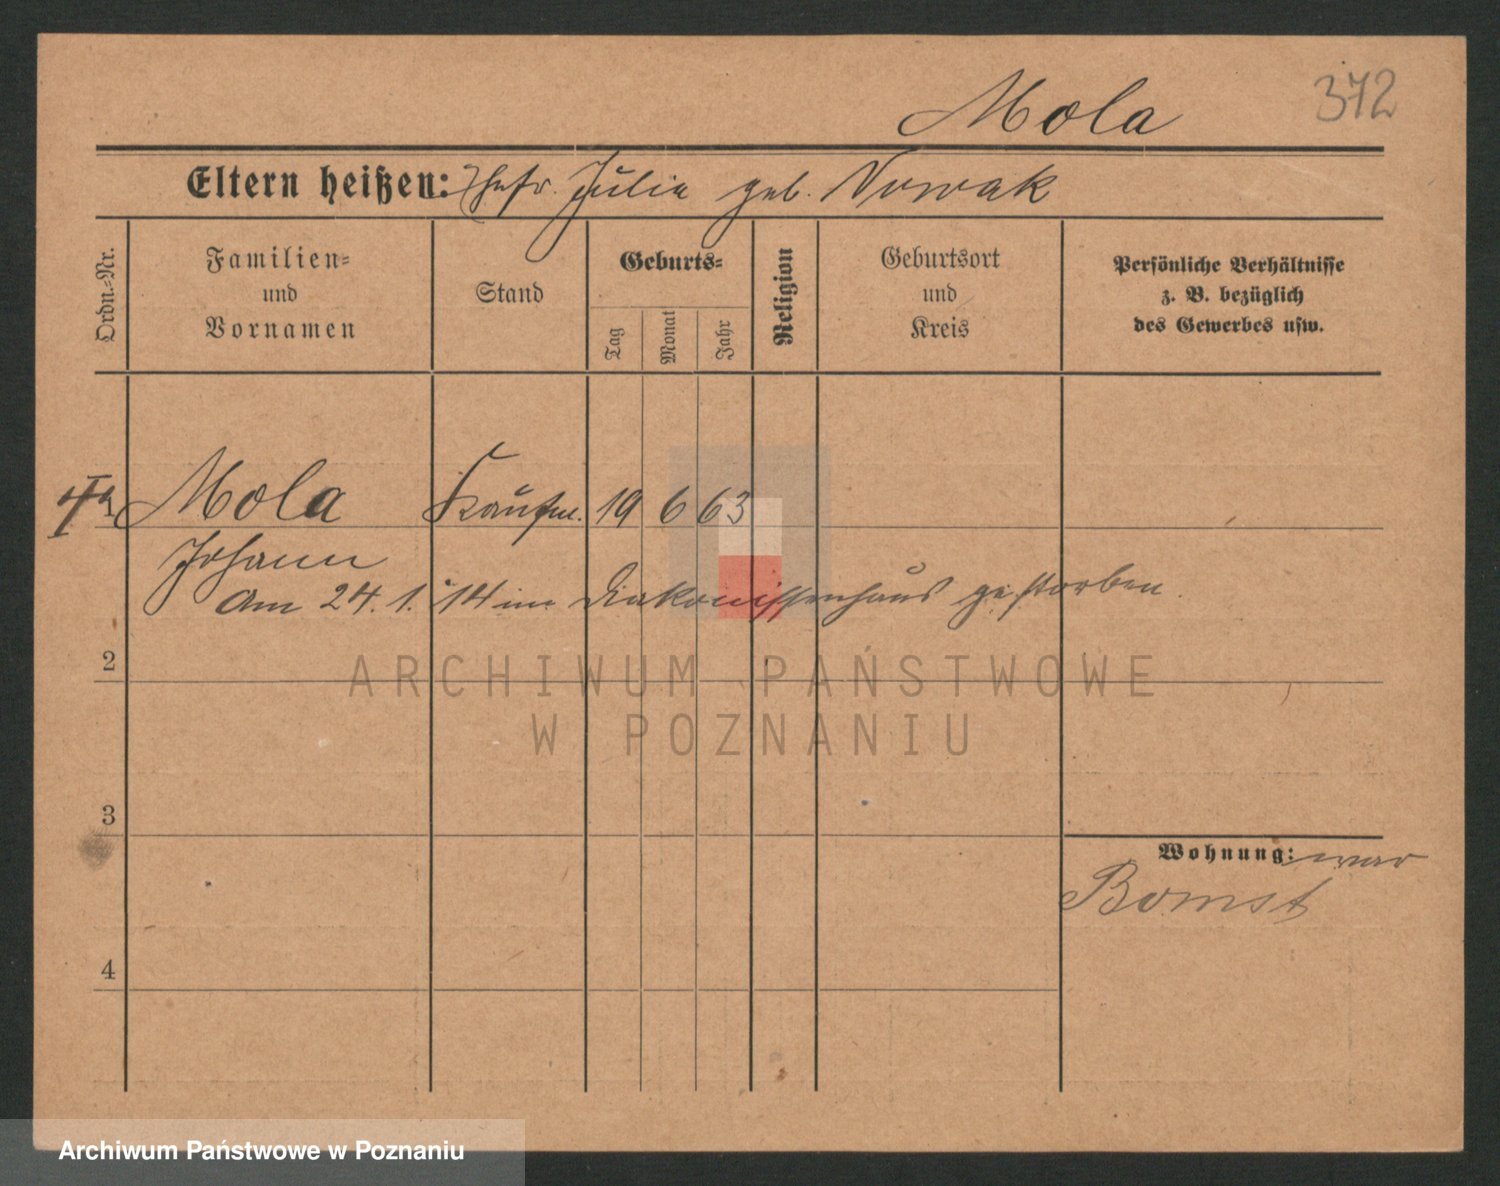 Mola
372
Eltern heißen: Ehefr. Julia geb. Nowak
Ordn.-Nr.
Familien-
und
Vornamen
Stand
Geburts-
Tag
Monat
Jahr
Religion
Geburtsort
und
Kreis
Persönliche Verhältnisse
z. B. bezüglich
des Gewerbes usw.
1 Mola Kaufm. 19 6 63
Johann
am 24. 1. 14 im Diakonissenhaus gestorben.
2
ARCHIWUM PAŃSTWOWE
W POZNANIU
3
Wohnung: war
Bomst
4
Archiwum Państwowe w Poznaniu